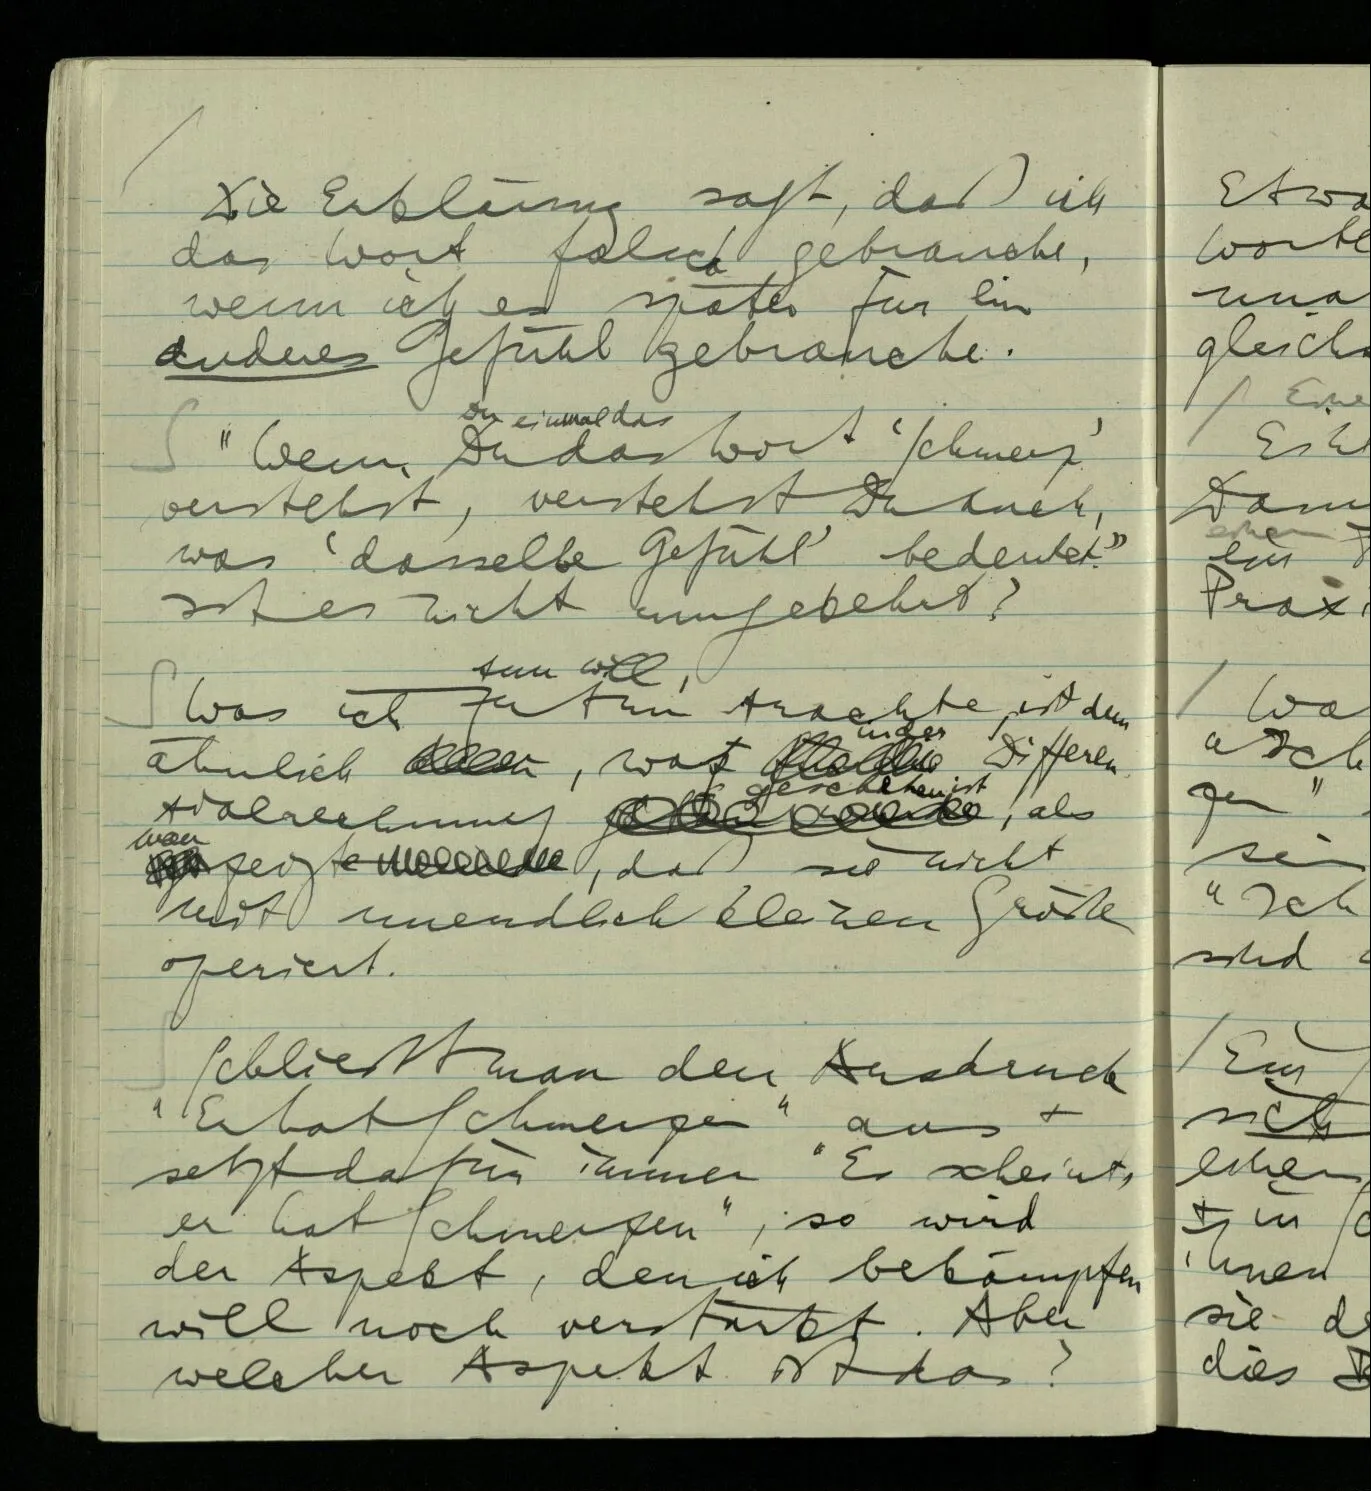 Die Erklärung sagt, daß ich
das Wort falsch gebrauche,
wenn ich es später für ein
anderes Gefühl gebrauche.
Du einmal das
"Wenn Du das Wort 'Schmerz'
verstehst, verstehst Du auch,
was 'dasselbe Gefühl' bedeutet."
Ist es nicht umgekehrt?
tun will,
Was ich zu tun trachte, ist dem
in der
ähnlich, was Differen
geschehen ist
tialrechnung, als
man
zeigte, daß sie nicht
mit unendlich kleinen Größe
operiert.
Schließt man den Ausdruck
"Er hat Schmerzen" aus +
setzt dafür immer "Es scheint,
er hat Schmerzen", so wird
der Aspekt, den ich bekämpfen
will noch verstärkt. Aber
welcher Aspekt ist das?
Etwa
Worte
una
gleich
Eine
Es
Dam
einen
ein
Prax
Wa
"Ich
gen"
sein
"Ich
sind
Ein
sich
einen
+ in
ihnen
sie de
dies